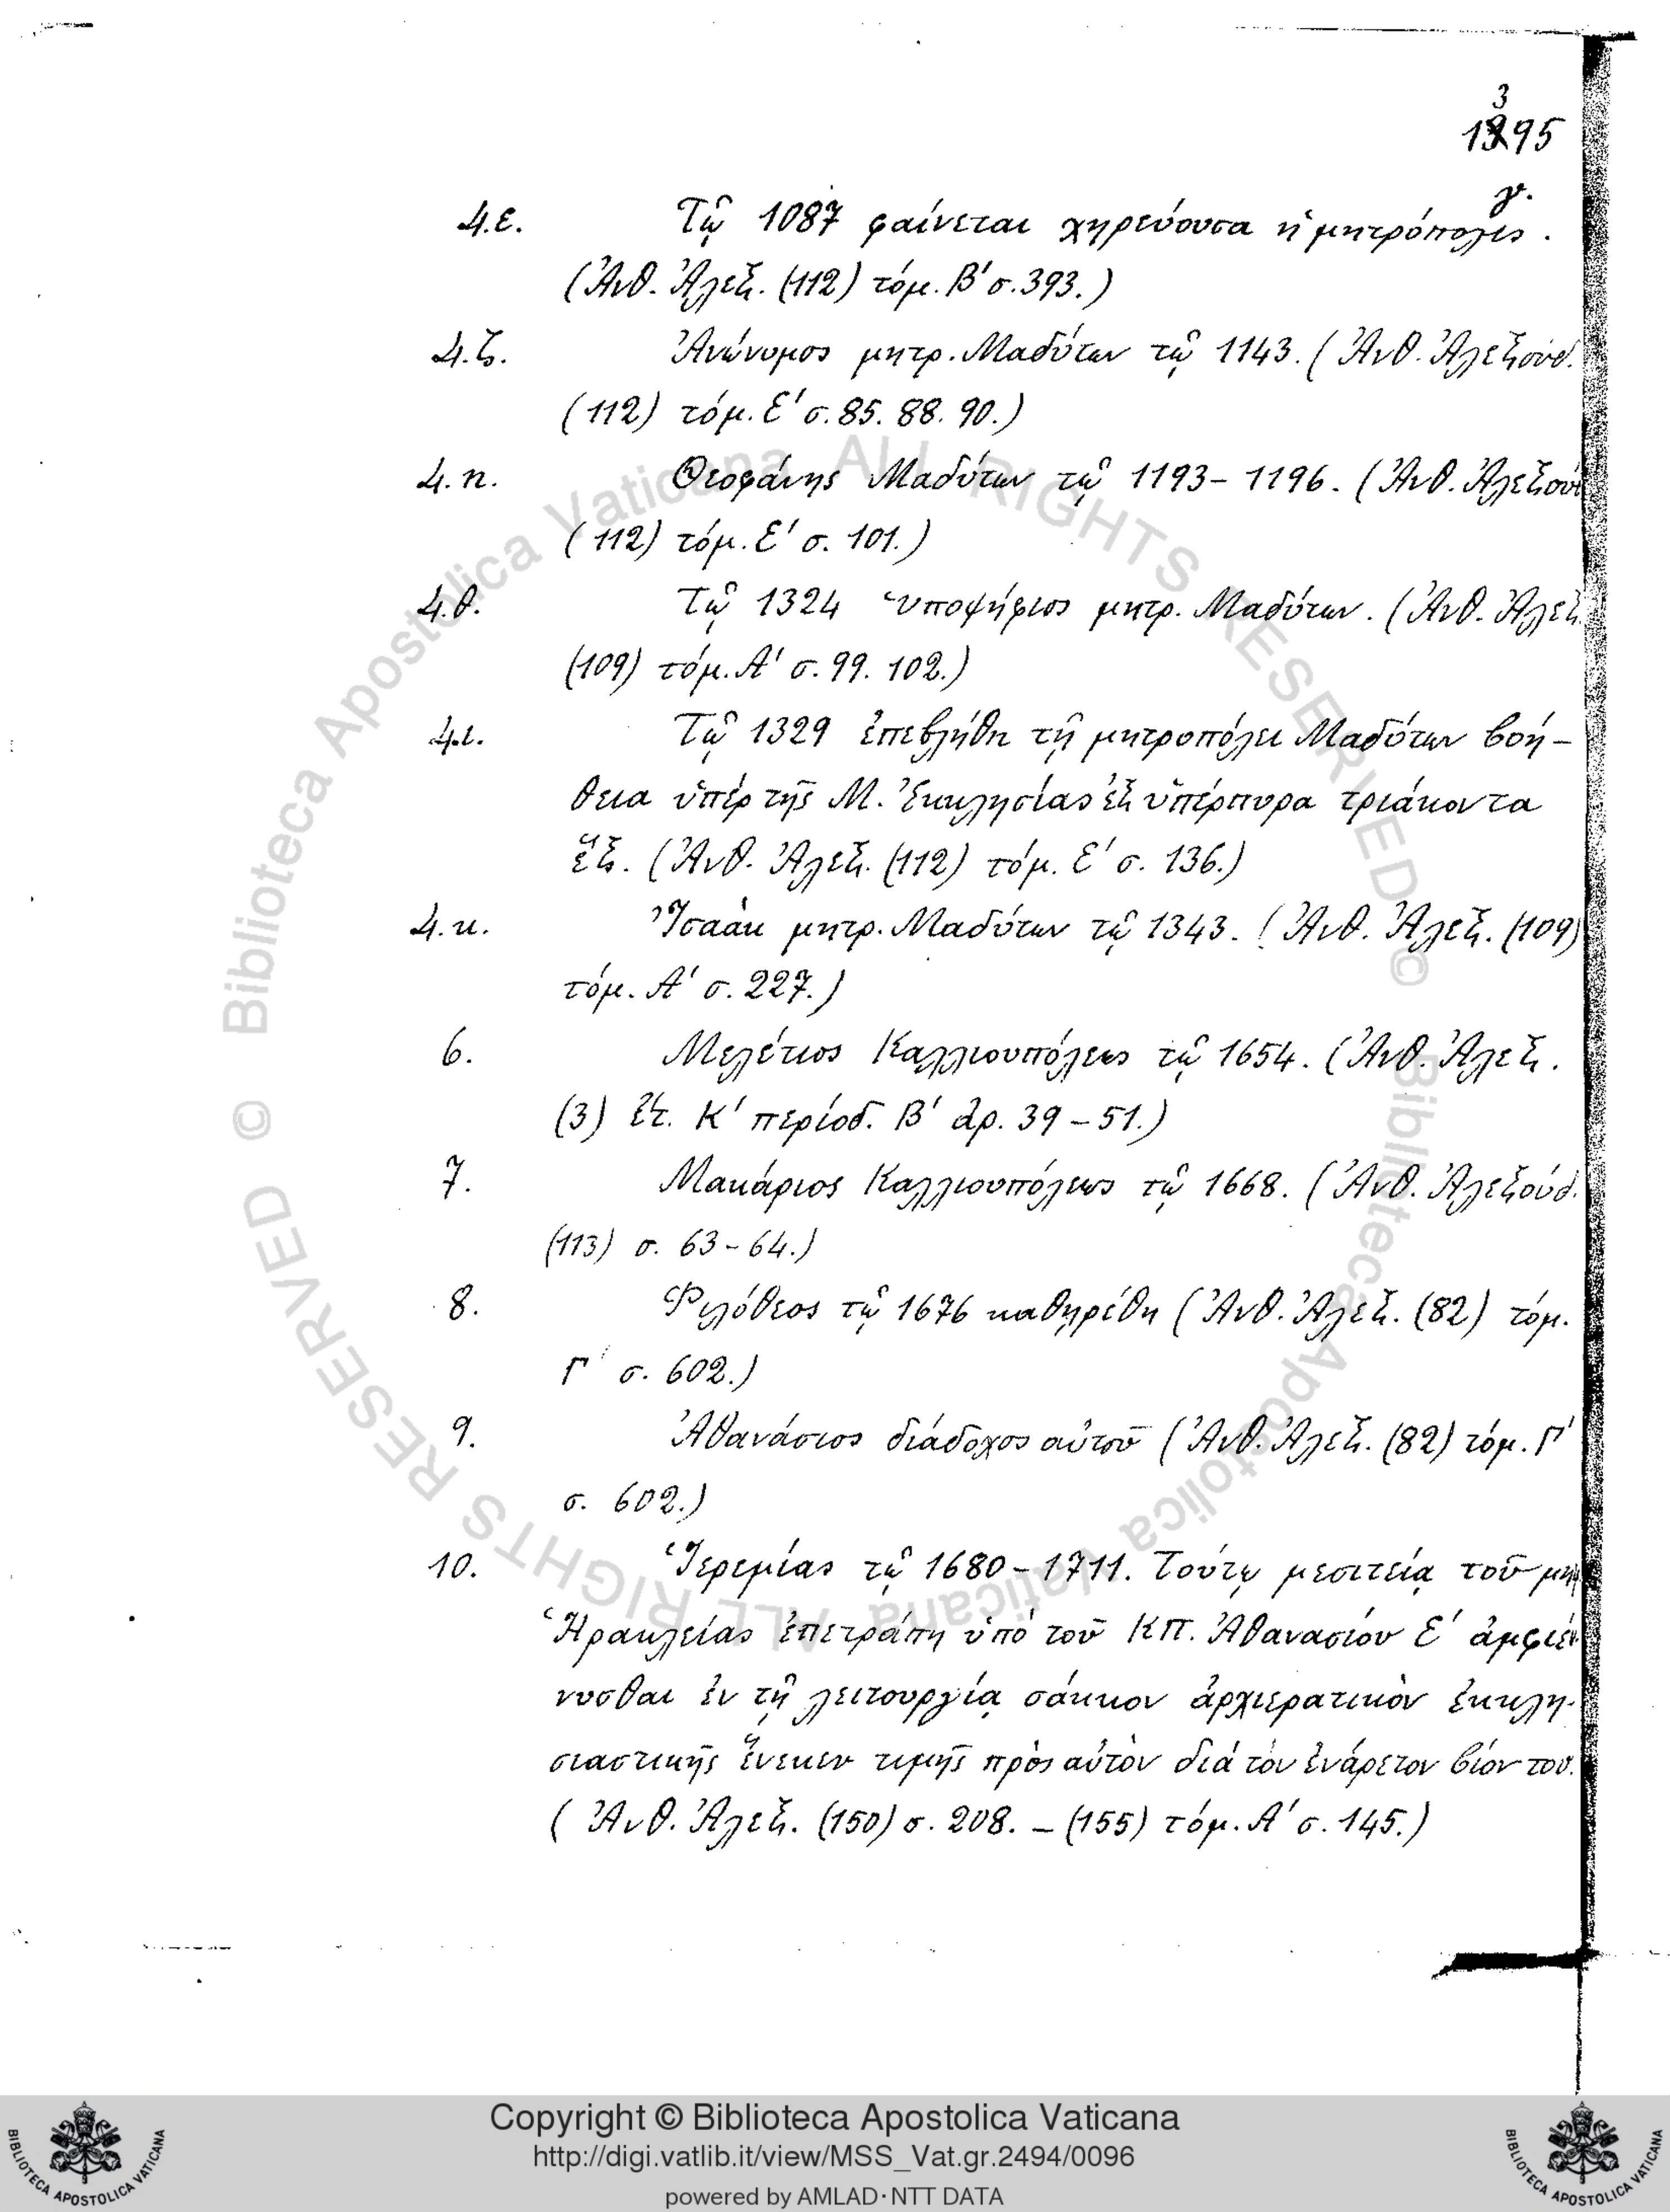 3
1395
γ.
4.ε. Τῷ 1087 φαίνεται χηρεύουσα ἡ μητρόπολις.
(Ἀνθ. Ἀλεξ. (112) τόμ. Β' σ. 393.)
4.ζ. Ἀνώνυμος μητρ. Μαδύτων τῷ 1143. (Ἀνθ. Ἀλεξούδ.
(112) τόμ. Ε' σ. 85. 88. 90.)
4.η. Θεοφάνης Μαδύτων τῷ 1193-1196. (Ἀνθ. Ἀλεξού
(112) τόμ. Ε' σ. 101.)
4.θ. Τῷ 1324 ὑποψήφιος μητρ. Μαδύτων. (Ἀνθ. Ἀλεξ.
(109) τόμ. Α' σ. 99. 102.)
4.ι. Τῷ 1329 ἐπεβλήθη τῇ μητροπόλει Μαδύτων βοή-
θεια ὑπὲρ τῆς Μ. Ἐκκλησίας ἐξ ὑπέρπυρα τριάκοντα
ἕξ. (Ἀνθ. Ἀλεξ. (112) τόμ. Ε' σ. 136.)
4.κ. Ἰσαὰκ μητρ. Μαδύτων τῷ 1343. (Ἀνθ. Ἀλεξ. (109)
τόμ. Α' σ. 227.)
6. Μελέτιος Καλλιουπόλεως τῷ 1654. (Ἀνθ. Ἀλεξ.
(3) ἔτ. Κ' περίοδ. Β' ἀρ. 39-51.)
7. Μακάριος Καλλιουπόλεως τῷ 1668. (Ἀνθ. Ἀλεξούδ.
(113) σ. 63-64.)
8. Φιλόθεος τῷ 1676 καθῃρέθη (Ἀνθ. Ἀλεξ. (82) τόμ.
Γ' σ. 602.)
9. Ἀθανάσιος διάδοχος αὐτοῦ (Ἀνθ. Ἀλεξ. (82) τόμ. Γ'
σ. 602.)
10. Ἱερεμίας τῷ 1680-1711. Τούτῳ μεσιτείᾳ τοῦ μη
Ἡρακλείας ἐπετράπη ὑπὸ τοῦ ΚΠ. Ἀθανασίου Ε' ἀμφιέν
νυσθαι ἐν τῇ λειτουργίᾳ σάκκον ἀρχιερατικὸν ἐκκλη-
σιαστικῆς ἕνεκεν τιμῆς πρὸς αὐτὸν διὰ τὸν ἐνάρετον βίον του.
(Ἀνθ. Ἀλεξ. (150) σ. 208. - (155) τόμ. Α' σ. 145.)
© Biblioteca Apostolica Vaticana ALL RIGHTS RESERVED © Biblioteca Apostolica Vaticana ALL RIGHTS RESERVED
Copyright © Biblioteca Apostolica Vaticana
http://digi.vatlib.it/view/MSS_Vat.gr.2494/0096
powered by AMLAD·NTT DATA
BIBLIOTECA APOSTOLICA VATICANA
BIBLIOTECA APOSTOLICA VATICANA